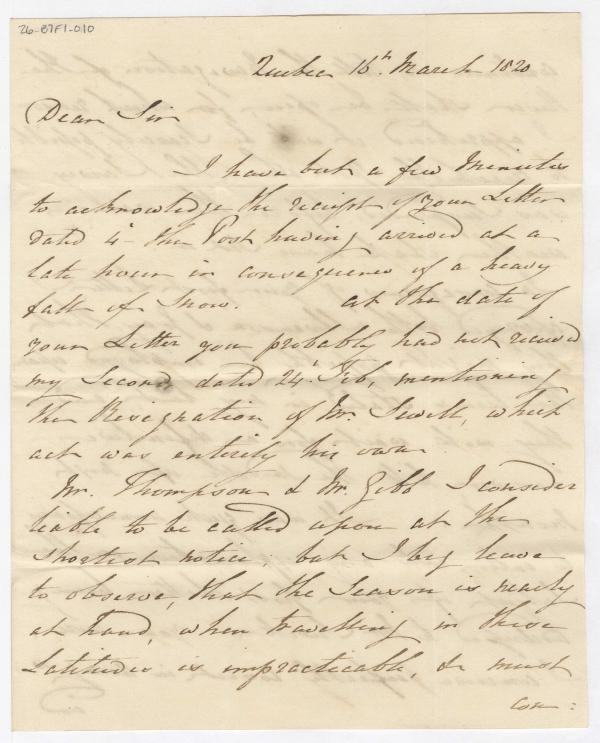 26-B7F1-010
Quebec 16th March 1820
Dear Sir
I have but a few Minutes
to acknowledge the receipt of your Letter
dated 4th the Post having arrived at a
late hour in consequence of a heavy
fall of Snow. at the date of
your Letter you probably had not received
my Second, dated 24th Feb, mentioning
the Resignation of Mr. Sewell, which
act was entirely his own.
Mr. Thompson & Mr. Gibb I consider
liable to be called upon at the
shortest notice; but I beg leave
to observe, that the Season is nearly
at hand, when travelling in these
Latitudes is impracticable, & must
con: